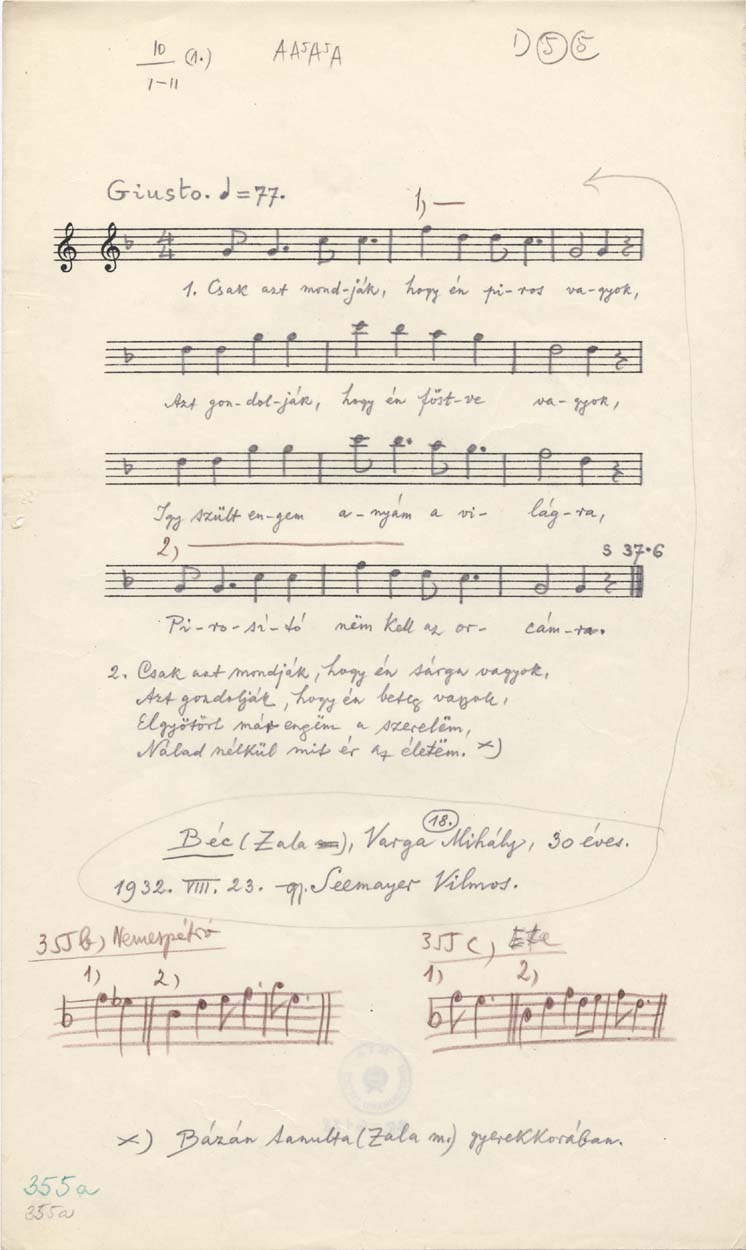 10 (1.) AA⁵A⁵A D 5 5
I-II
Giusto. ♩=77.
1,
4
4
1. Csak azt mond-ják, hogy én pi-ros va-gyok,
Azt gon-dol-ják, hogy én föst-ve va-gyok,
Igy szült en-gem a-nyám a vi- lág-ra,
2,
S 37.6
Pi-ro-sí-tó nëm kell az or- cám-ra.
2. Csak azt mondják, hogy én sárga vagyok,
Azt gondolják, hogy én beteg vagyok,
Elgyötört már engëm a szerelëm,
Nálad nélkül mit ér az életëm. x)
18.
Béc (Zala), Varga Mihály, 30 éves.
1932. VIII. 23. gy. Seemayer Vilmos.
355b) Nemespátró
355c) Ete
1) 2)
1) 2)
x) Bázán tanulta (Zala m.) gyerekkorában.
355a
355a